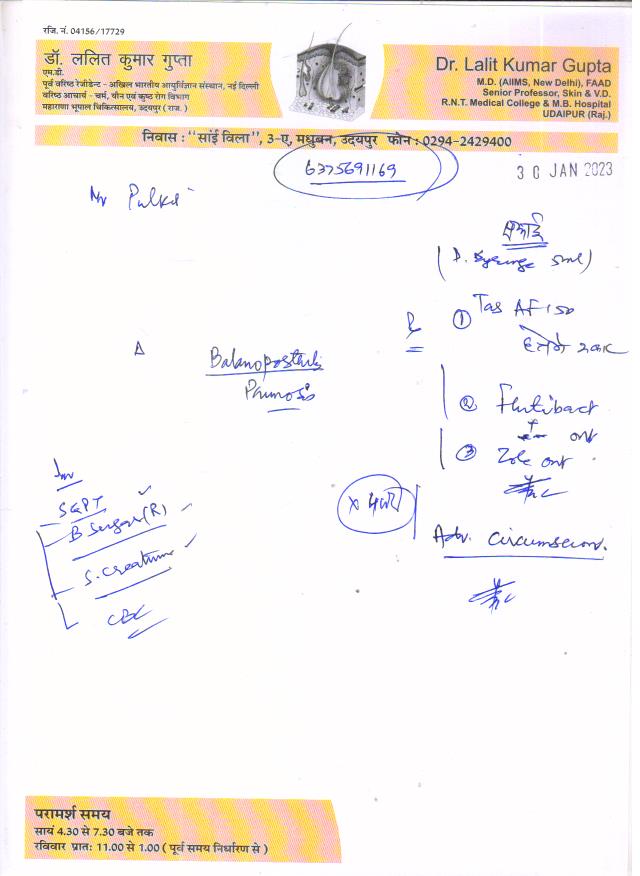 रजि. नं. 04156/17729
डॉ. ललित कुमार गुप्ता
एम.डी.
पूर्व वरिष्ठ रेजीडेन्ट - अखिल भारतीय आयुर्विज्ञान संस्थान, नई दिल्ली
वरिष्ठ आचार्य - चर्म, यौन एवं कुष्ठ रोग विभाग
महाराणा भूपाल चिकित्सालय, उदयपुर ( राज. )
Dr. Lalit Kumar Gupta
M.D. (AIIMS, New Delhi), FAAD
Senior Professor, Skin & V.D.
R.N.T. Medical College & M.B. Hospital
UDAIPUR (Raj.)
निवास : "सांई विला", 3-ए, मधुबन, उदयपुर फोन : 0294-2429400
6375691169
30 JAN 2023
Mr
सफाई
(D. Syringe 5ml)
① Tab AF 150
हफ्ते में एकबार
Δ
② Flutibact
+ ont
③ Zole ont
Inv
SGPT
B Sugar (R)
S. Creatinine
CBC
Adv. Circumcision.
परामर्श समय
सायं 4.30 से 7.30 बजे तक
रविवार प्रात: 11.00 से 1.00 ( पूर्व समय निर्धारण से )